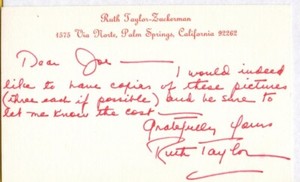 Ruth Taylor-Zuckerman
1575 Via Norte, Palm Springs, California 92262
Dear Joe —
I would indeed
like to have copies of these pictures
(three each if possible) and be sure to
let me know the cost —
Gratefully yours
Ruth Taylor